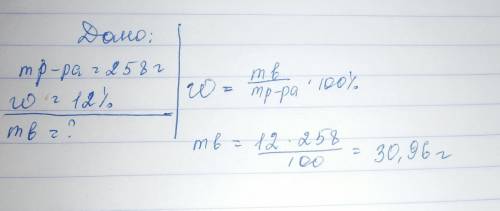 Дано:
mр-ра = 258 г
w = 12%
mв = ?
w = mв / mр-ра · 100%
mв = 12 · 258 / 100 = 30,96 г